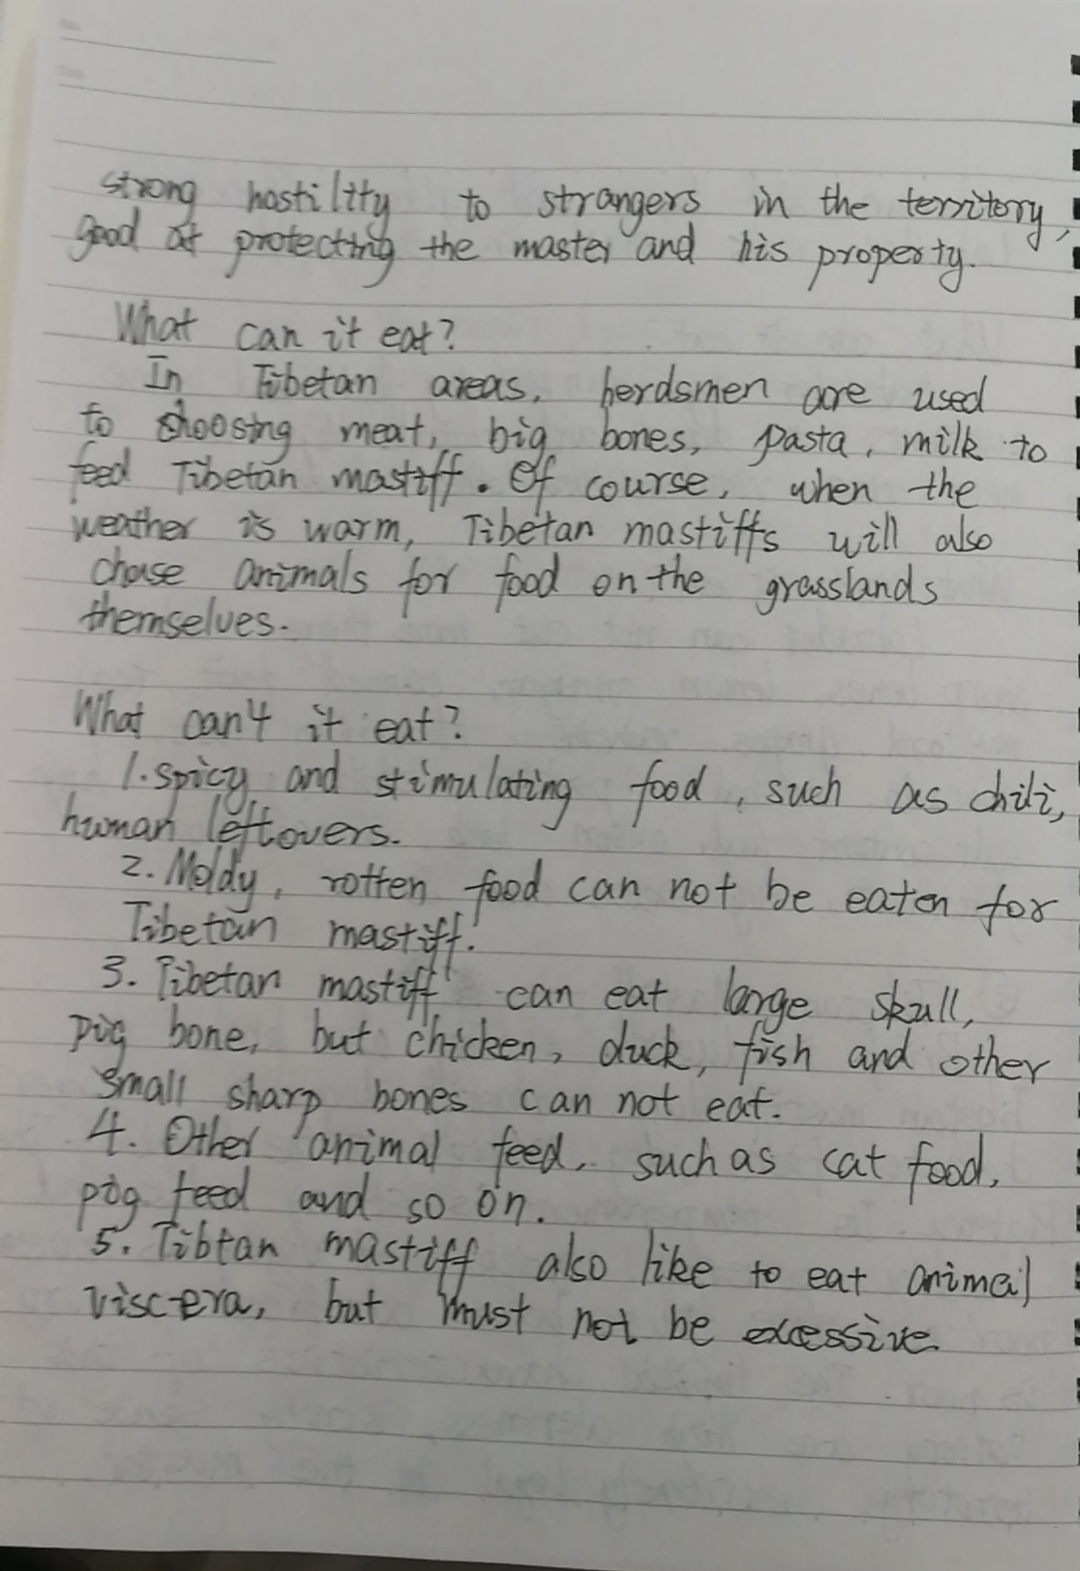 strong hostility to strangers in the territory,
good at protecting the master and his property.
What can it eat?
In Tibetan areas, herdsmen are used
to choosing meat, big bones, pasta, milk to
feed Tibetan mastiff. Of course, when the
weather is warm, Tibetan mastiffs will also
chase animals for food on the grasslands
themselves.
What can't it eat?
1. spicy and stimulating food, such as chili,
human leftovers.
2. Moldy, rotten food can not be eaten for
Tibetan mastiff.
3. Tibetan mastiff can eat large skull,
pig bone, but chicken, duck, fish and other
small sharp bones can not eat.
4. Other animal feed, such as cat food,
pig feed and so on.
5. Tibtan mastiff also like to eat animal
viscera, but must not be excessive.